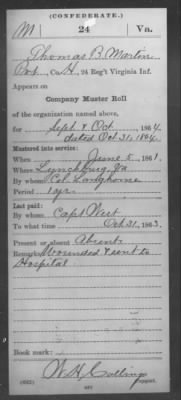 (CONFEDERATE.)
M 24 Va.
Thomas B. Martin
Pvt, Co. H, 24 Reg't Virginia Inf.
Appears on
Company Muster Roll
of the organization named above,
for Sept & Oct, 1864.
dated Oct 31, 1864
Mustered into service:
When June 5, 1861
Where Lynchburg, Va
By whom Col Langhorne
Period 1 yr.
Last paid:
By whom Capt West
To what time Oct 31, 1863.
Present or absent Absent
Remarks: Wounded & sent to
Hospital
Book mark:
W. H. Collins
(642) Copyist.